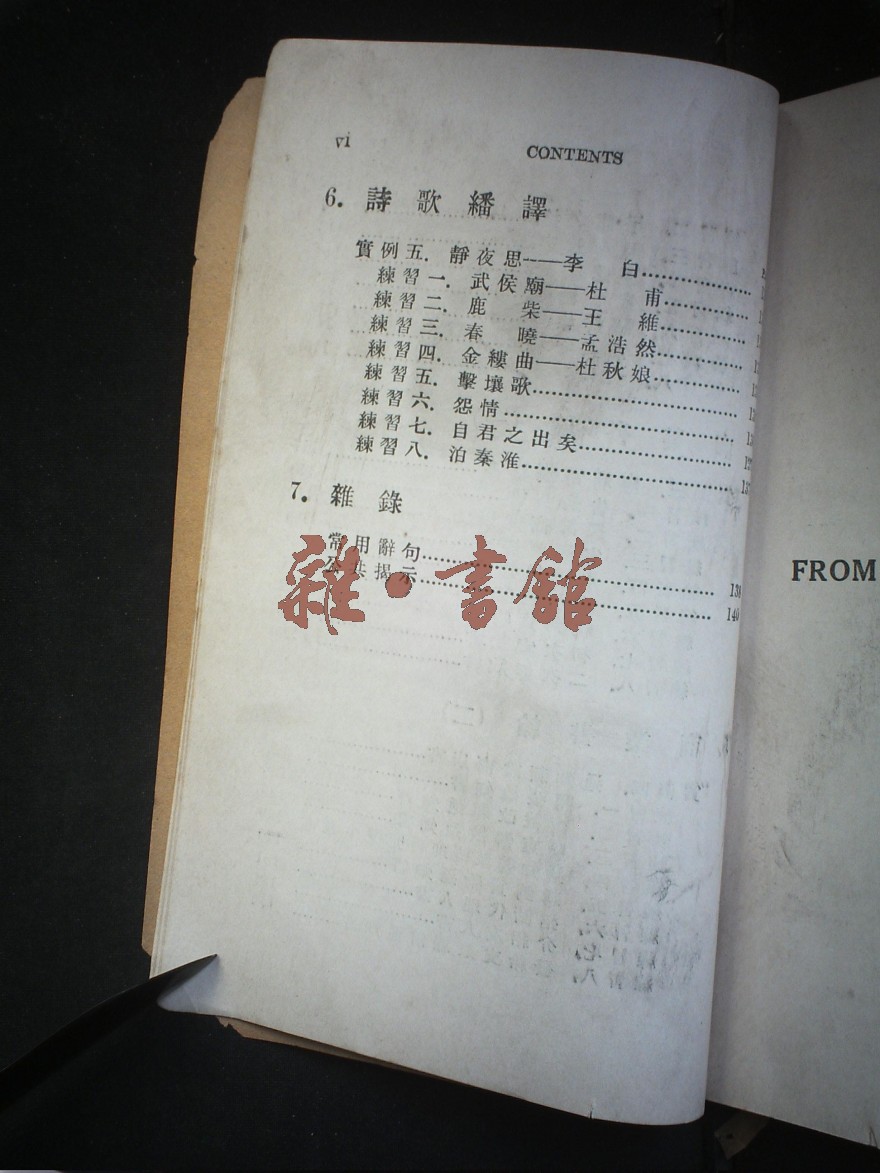 vi CONTENTS
6. 詩歌繙譯
實例五. 靜夜思——李白
練習一. 武侯廟——杜甫
練習二. 鹿柴——王維
練習三. 春曉——孟浩然
練習四. 金縷曲——杜秋娘
練習五. 擊壤歌
練習六. 怨情
練習七. 自君之出矣
練習八. 泊秦淮
7. 雜錄
常用辭句 138
公共揭示 140
雜·書館
FROM